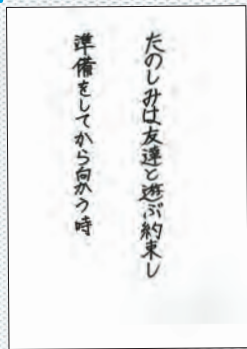 たのしみは友達と遊ぶ約束し
準備をしてから向かう時